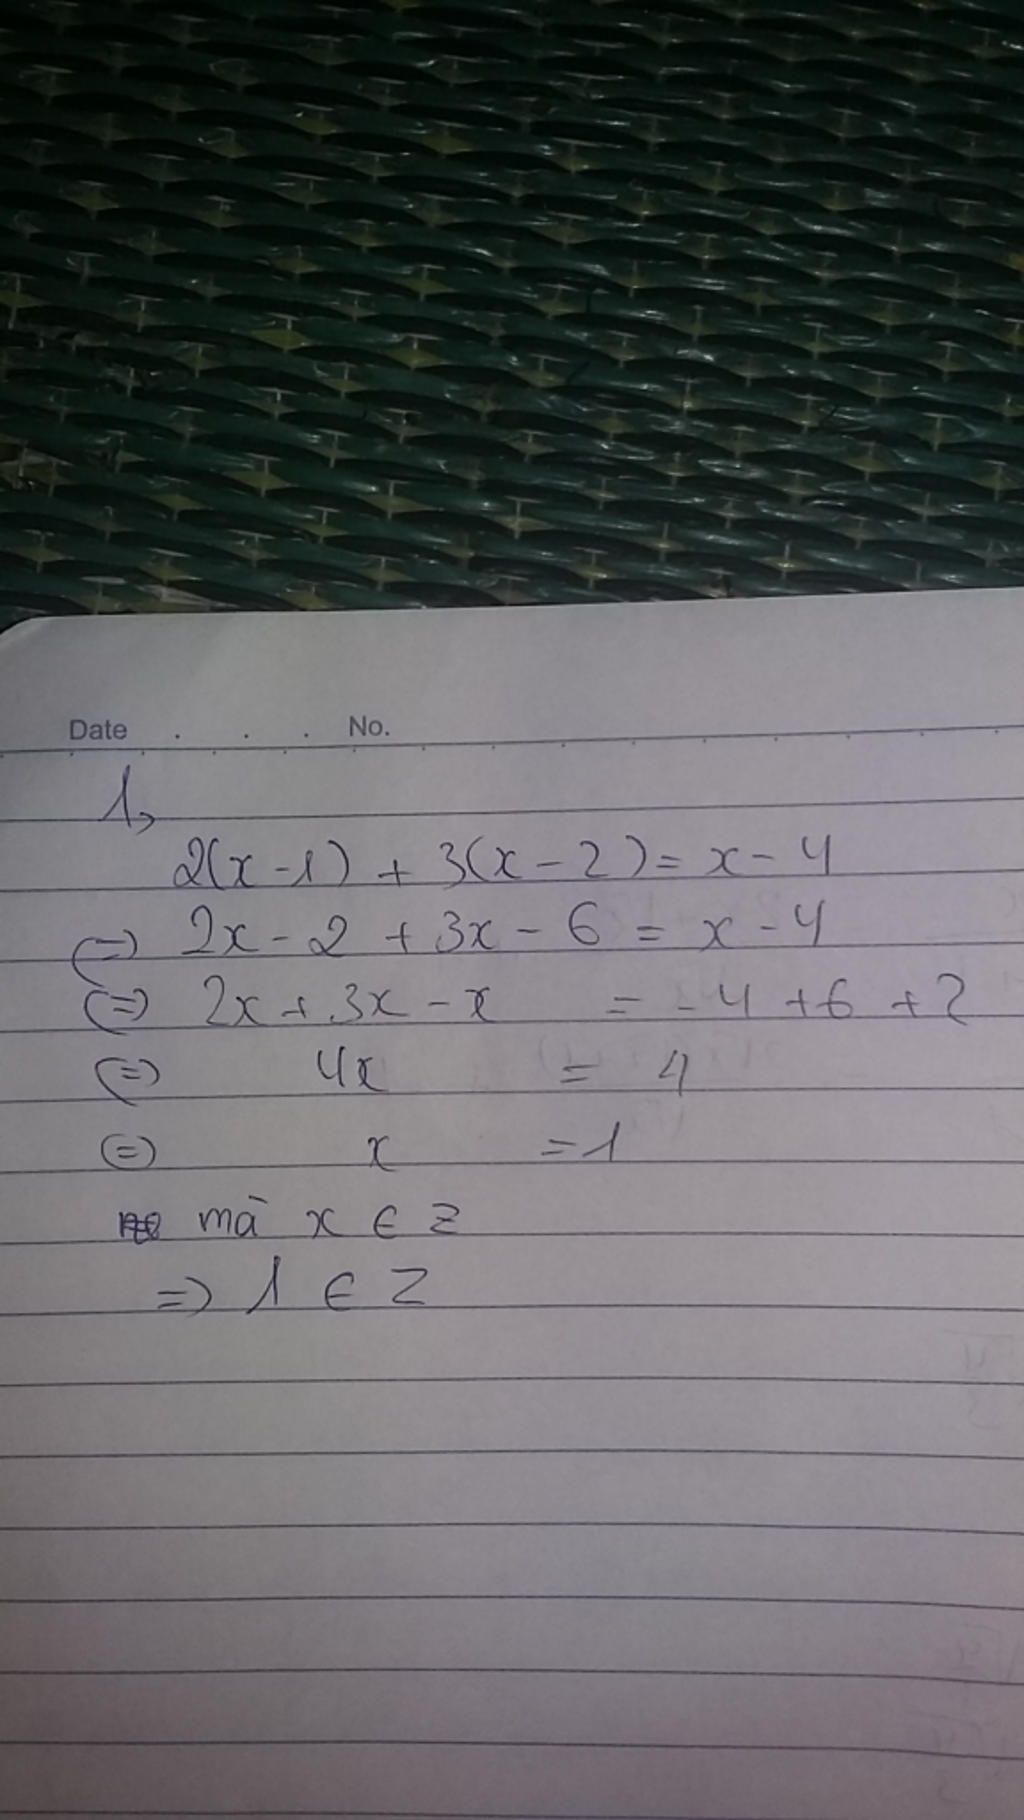 Date . . . No.
1,
2(x-1) + 3(x-2) = x-4
(=) 2x-2 + 3x - 6 = x-4
(=) 2x + 3x - x = -4 +6 +2
(=) 4x = 4
(=) x = 1
mà x ∈ Z
=> 1 ∈ Z